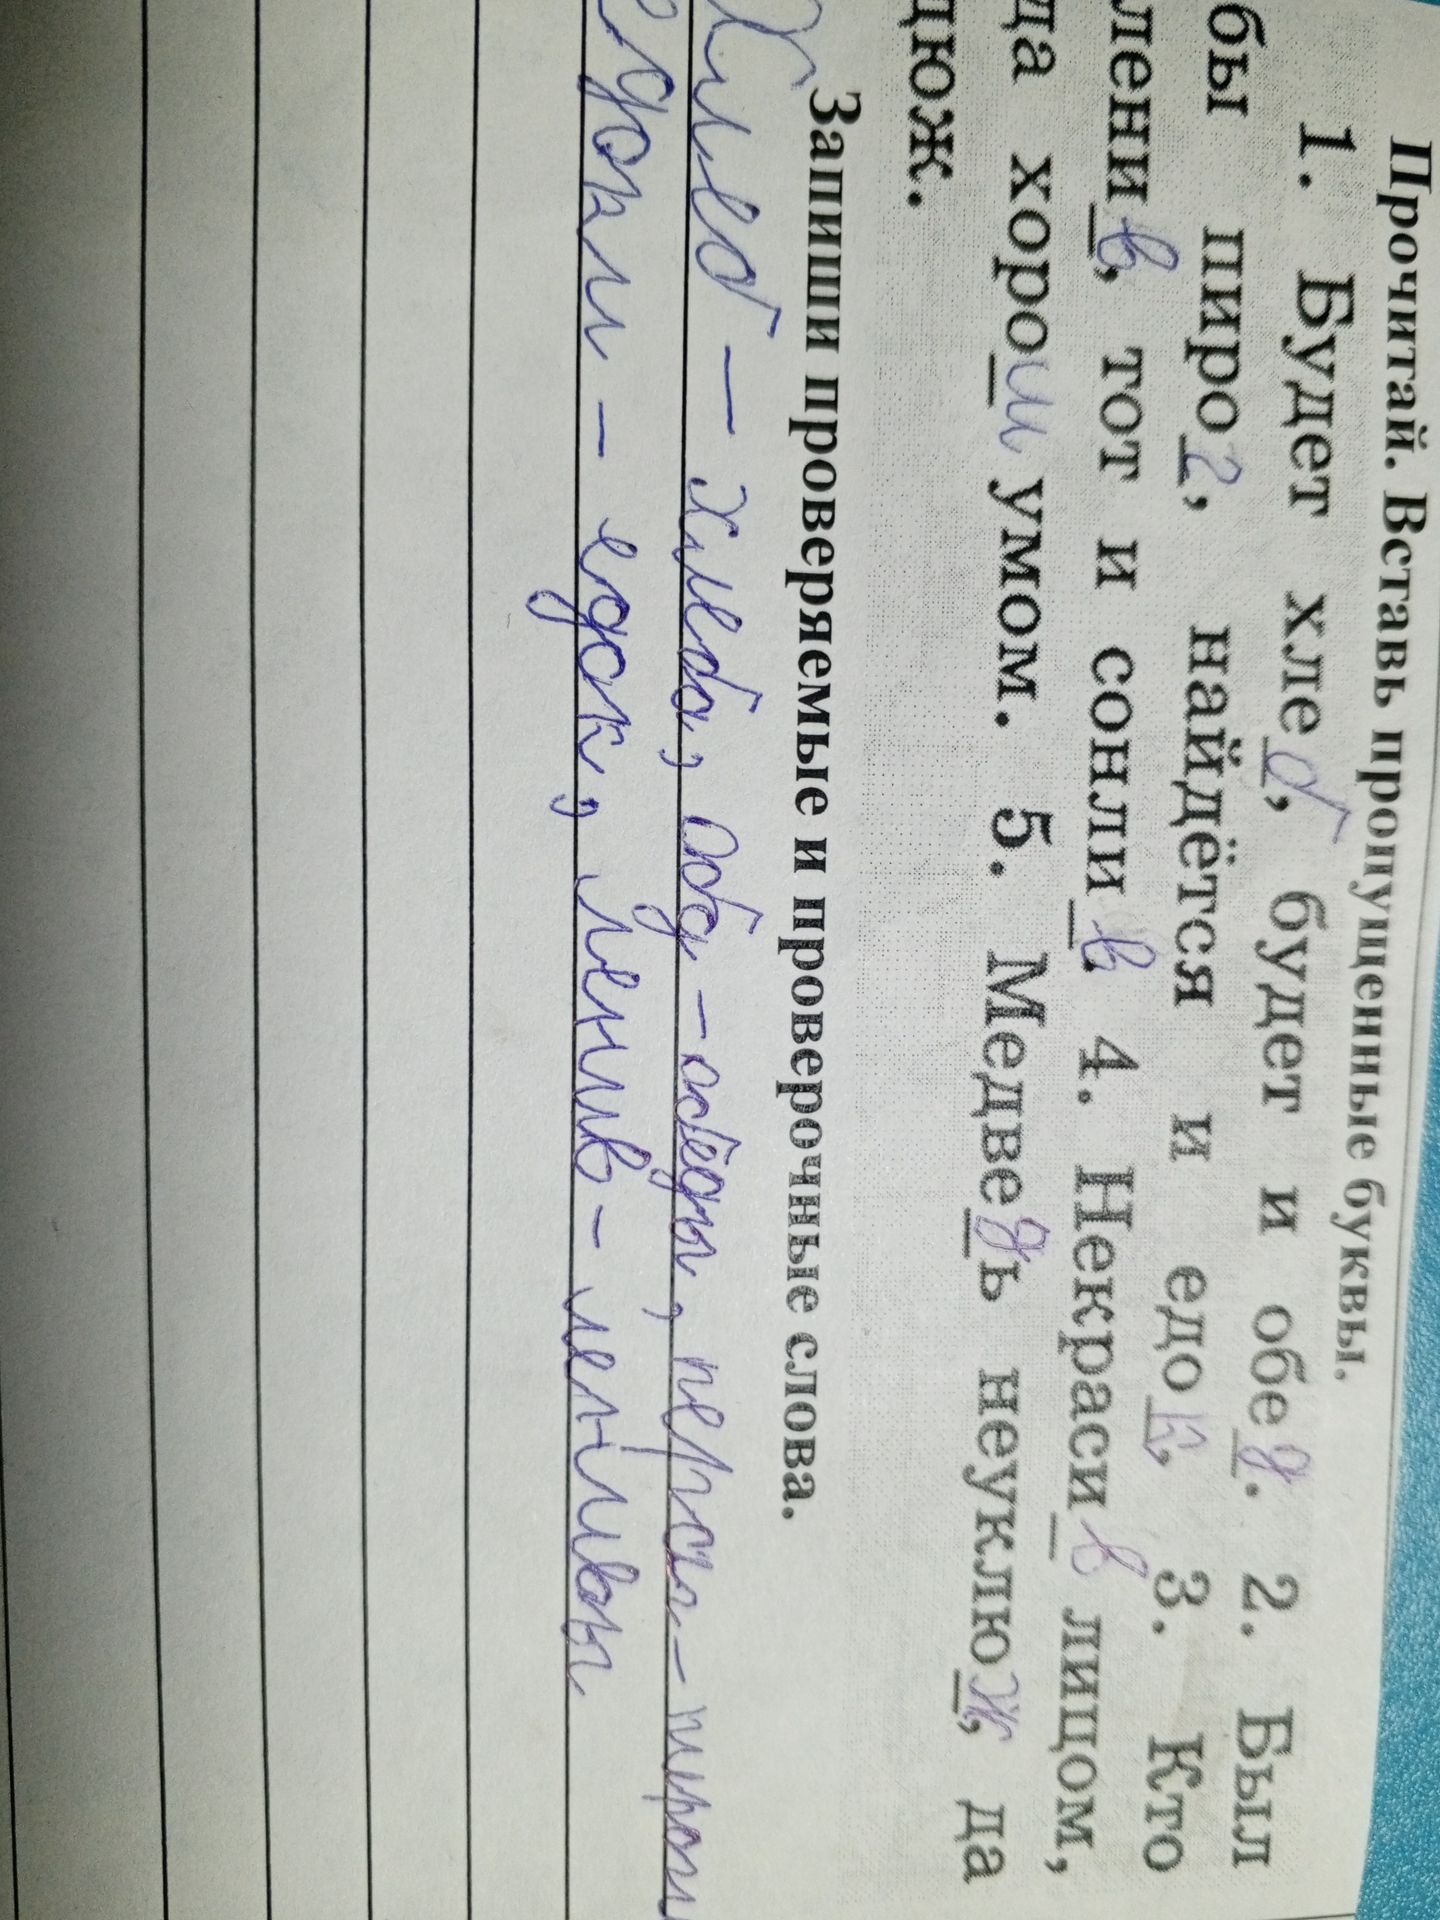 Прочитай. Вставь пропущенные буквы.
1. Будет хлеб, будет и обед. 2. Был
бы пирог, найдётся и едок. 3. Кто
ленив, тот и сонлив. 4. Некрасив лицом,
да хорош умом. 5. Медведь неуклюж, да
дюж.
Запиши проверяемые и проверочные слова.
Хлеб – хлеба, обед – обеды,
едоки – едок, ленив – ленивы